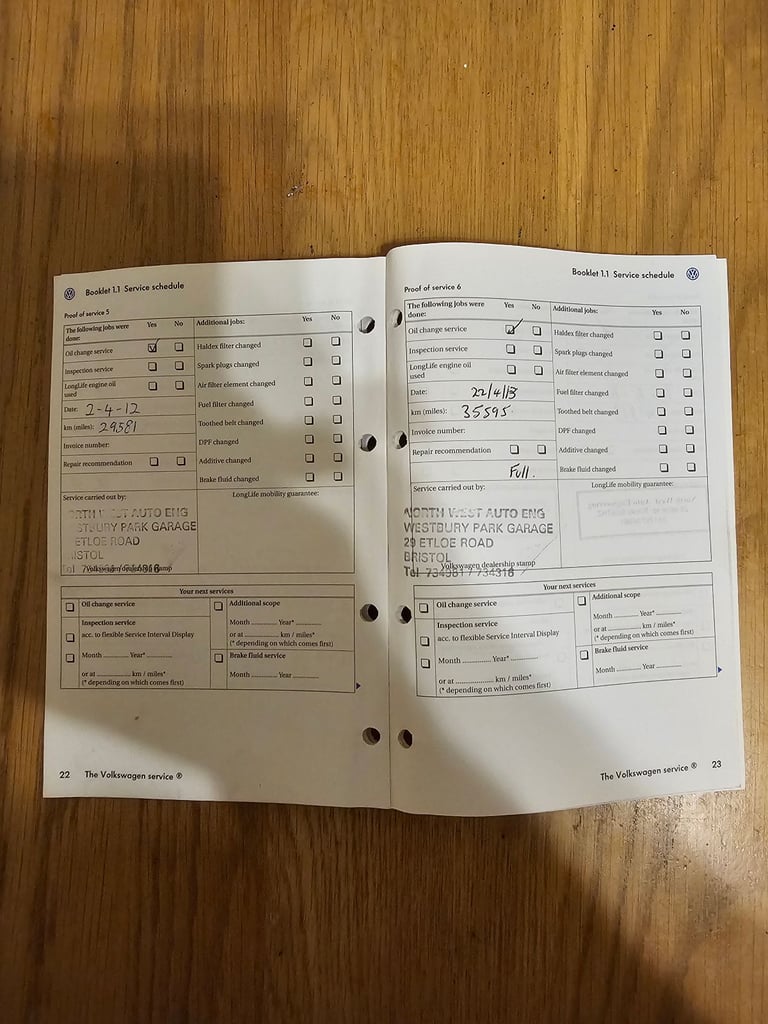 Booklet 1.1 Service schedule
Proof of service 5
The following jobs were done: Yes No
Oil change service
Inspection service
LongLife engine oil used
Date: 2-4-12
km (miles): 29581
Invoice number:
Repair recommendation
Additional jobs: Yes No
Haldex filter changed
Spark plugs changed
Air filter element changed
Fuel filter changed
Toothed belt changed
DPF changed
Additive changed
Brake fluid changed
Service carried out by:
NORTH WEST AUTO ENG
WESTBURY PARK GARAGE
ETLOE ROAD
BRISTOL
Volkswagen dealership stamp
LongLife mobility guarantee:
Your next services
Oil change service
Inspection service
acc. to flexible Service Interval Display
Month ............ Year* ............
or at ............ km / miles*
(* depending on which comes first)
Additional scope
Month ............ Year* ............
or at ............ km / miles*
(* depending on which comes first)
Brake fluid service
Month ............ Year ............
22 The Volkswagen service ®
Booklet 1.1 Service schedule
Proof of service 6
The following jobs were done: Yes No
Oil change service
Inspection service
LongLife engine oil used
Date: 22/4/13
km (miles): 35595
Invoice number:
Repair recommendation
Full.
Additional jobs: Yes No
Haldex filter changed
Spark plugs changed
Air filter element changed
Fuel filter changed
Toothed belt changed
DPF changed
Additive changed
Brake fluid changed
Service carried out by:
NORTH WEST AUTO ENG
WESTBURY PARK GARAGE
29 ETLOE ROAD
BRISTOL
Tel 734381 / 734316
Volkswagen dealership stamp
LongLife mobility guarantee:
Your next services
Oil change service
Inspection service
acc. to flexible Service Interval Display
Month ............ Year* ............
or at ............ km / miles*
(* depending on which comes first)
Additional scope
Month ............ Year* ............
or at ............ km / miles*
(* depending on which comes first)
Brake fluid service
Month ............ Year ............
The Volkswagen service ® 23